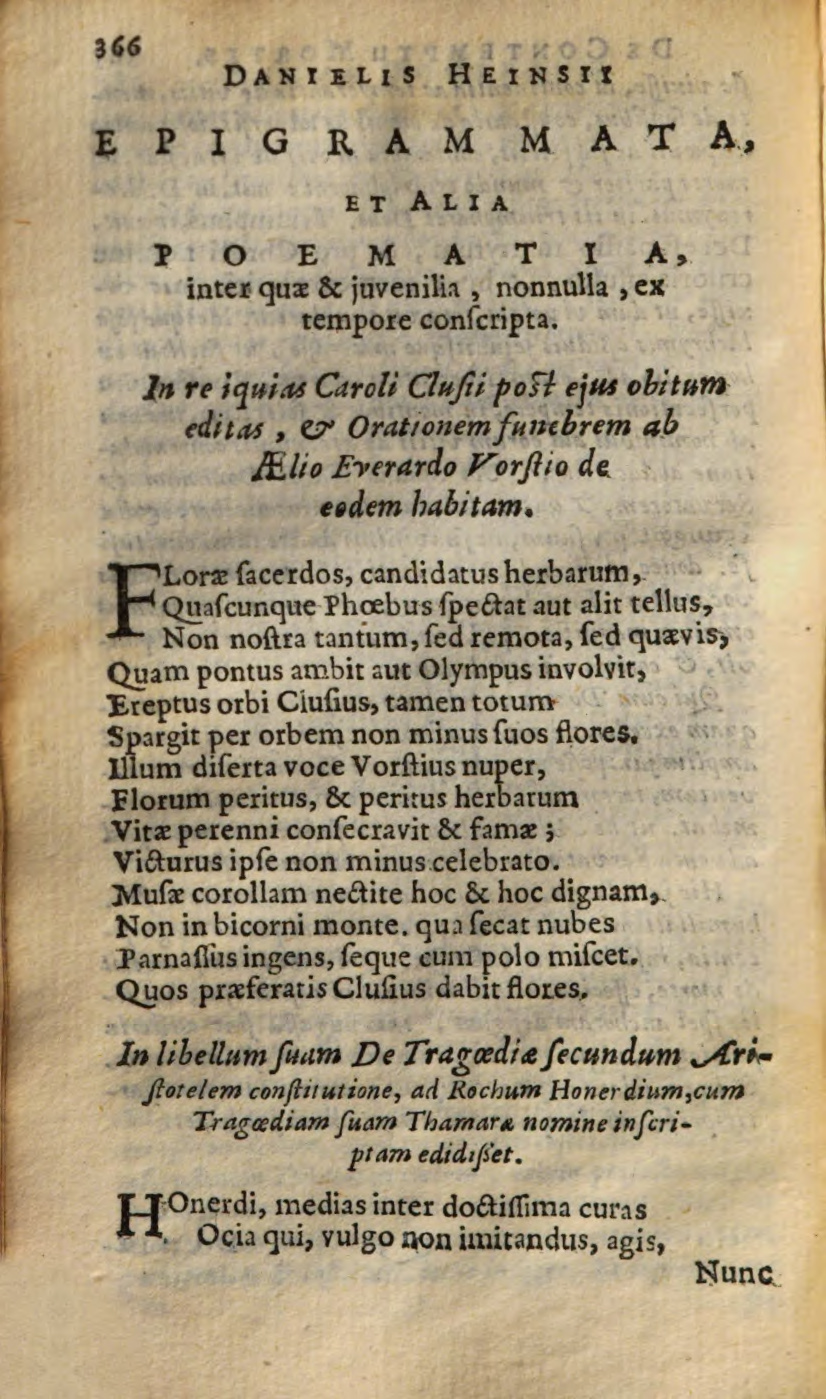 366
DANIELIS HEINSII
EPIGRAMMATA,
ET ALIA
POEMATIA,
inter quæ & juvenilia , nonnulla , ex
tempore conſcripta.
In re iquias Caroli Cluſii poſt ejus obitum
editas , & Orationem funebrem ab
Ælio Everardo Vorſtio de
eodem habitam.
FLoræ ſacerdos, candidatus herbarum,
Quaſcunque Phœbus ſpectat aut alit tellus,
Non noſtra tantum, ſed remota, ſed quævis,
Quam pontus ambit aut Olympus involvit,
Ereptus orbi Cluſius, tamen totum
Spargit per orbem non minus ſuos flores.
Illum diſerta voce Vorſtius nuper,
Florum peritus, & peritus herbarum
Vitæ perenni conſecravit & famæ ;
Victurus ipſe non minus celebrato.
Muſæ corollam nectite hoc & hoc dignam,
Non in bicorni monte. qua ſecat nubes
Parnaſſus ingens, ſeque cum polo miſcet.
Quos præferatis Cluſius dabit flores.
In libellum ſuam De Tragœdiæ ſecundum Ari-
ſtotelem conſtitutione, ad Rochum Honerdium, cum
Tragœdiam ſuam Thamaræ nomine inſcri-
ptam edidiſſet.
HOnerdi, medias inter doctiſſima curas
Ocia qui, vulgo non imitandus, agis,
Nunc